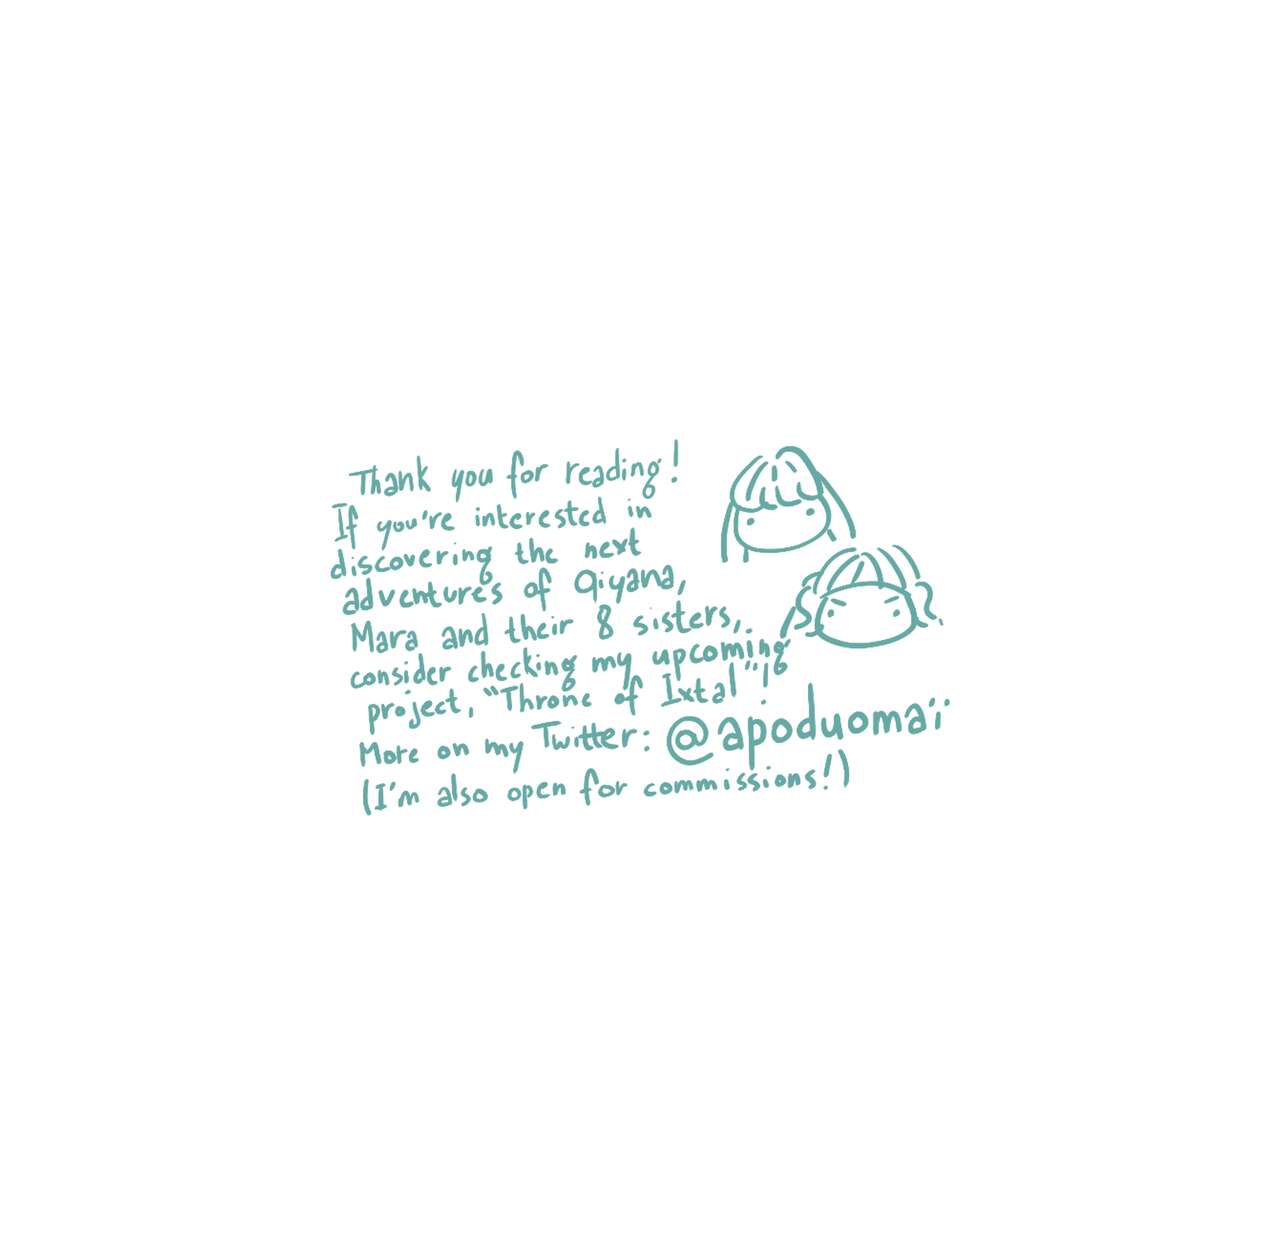 Thank you for reading!
If you're interested in
discovering the next
adventures of Qiyana,
Mara and their 8 sisters,
consider checking my upcoming
project, "Throne of Ixtal"!
More on my Twitter: @apoduomaï
(I'm also open for commissions!)